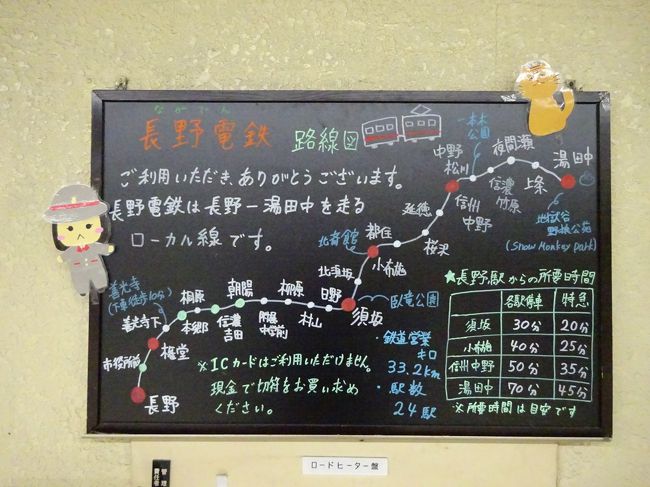 ながでん
長野電鉄 路線図
ご利用いただき、ありがとうございます。
長野電鉄は長野ー湯田中を走る
ローカル線です。
善光寺
(下車徒歩10分)
長野
市役所前
権堂
善光寺下
本郷
桐原
信濃
吉田
朝陽
附属
中学前
柳原
村山
日野
須坂
臥竜公園
北須坂
小布施
北斎館
都住
桜沢
延徳
信州
中野
中野
松川
一本木
公園
信濃
竹原
夜間瀬
上条
湯田中
地獄谷
野猿公苑
(Snow Monkey Park)
★長野駅からの所要時間
各駅停車 特急
須坂 30分 20分
小布施 40分 25分
信州中野 50分 35分
湯田中 70分 45分
※所要時間は目安です
・鉄道営業
キロ
33.2km
・駅数
24駅
※ICカードはご利用いただけません。
現金で切符をお買い求め
ください。
ロードヒーター盤
管理
責任者